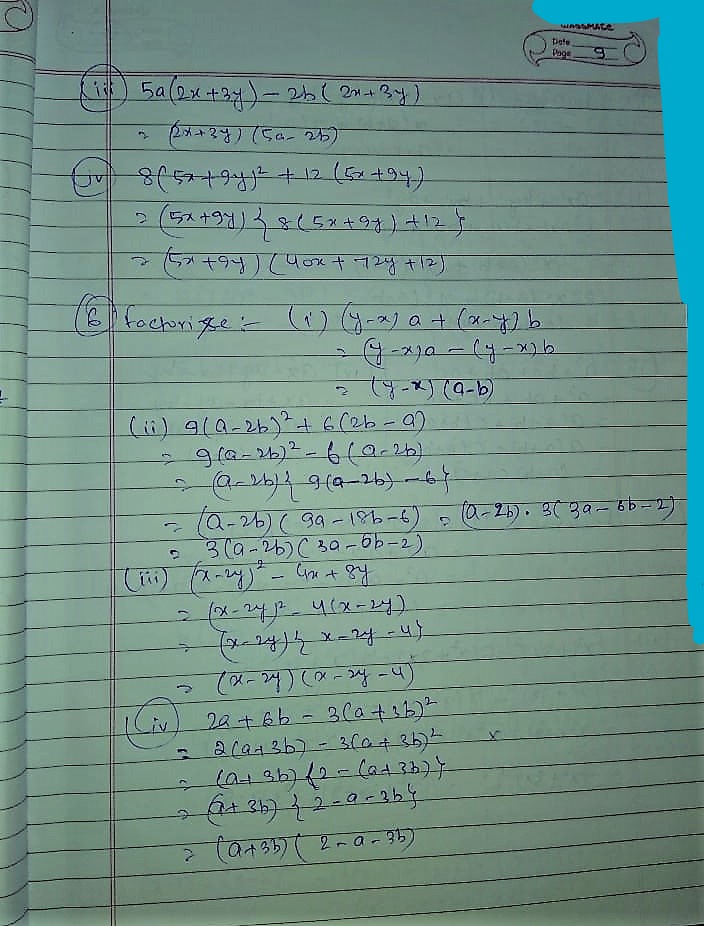 classmate
Date
Page 9
(iii) 5a(2x+3y) - 2b(2x+3y)
= (2x+3y) (5a-2b)
(iv) 8(5x+9y)² + 12 (5x+9y)
= (5x+9y) { 8(5x+9y) +12 }
= (5x+9y) (40x + 72y +12)
(6) factorize :- (i) (y-x) a + (x-y) b
= (y-x)a - (y-x)b
= (y-x) (a-b)
(ii) 9(a-2b)² + 6(2b-a)
= 9(a-2b)² - 6(a-2b)
= (a-2b) { 9(a-2b) -6 }
= (a-2b) ( 9a-18b-6) = (a-2b). 3( 3a-6b-2)
= 3(a-2b) ( 3a-6b-2)
(iii) (x-2y)² - 4x + 8y
= (x-2y)² - 4(x-2y)
= (x-2y) { x-2y -4}
= (x-2y) (x-2y-4)
(iv) 2a + 6b - 3(a+3b)²
= 2(a+3b) - 3(a+3b)² x
= (a+3b) {2-(a+3b)}
= (a+3b) { 2-a-3b}
= (a+3b) ( 2-a-3b)